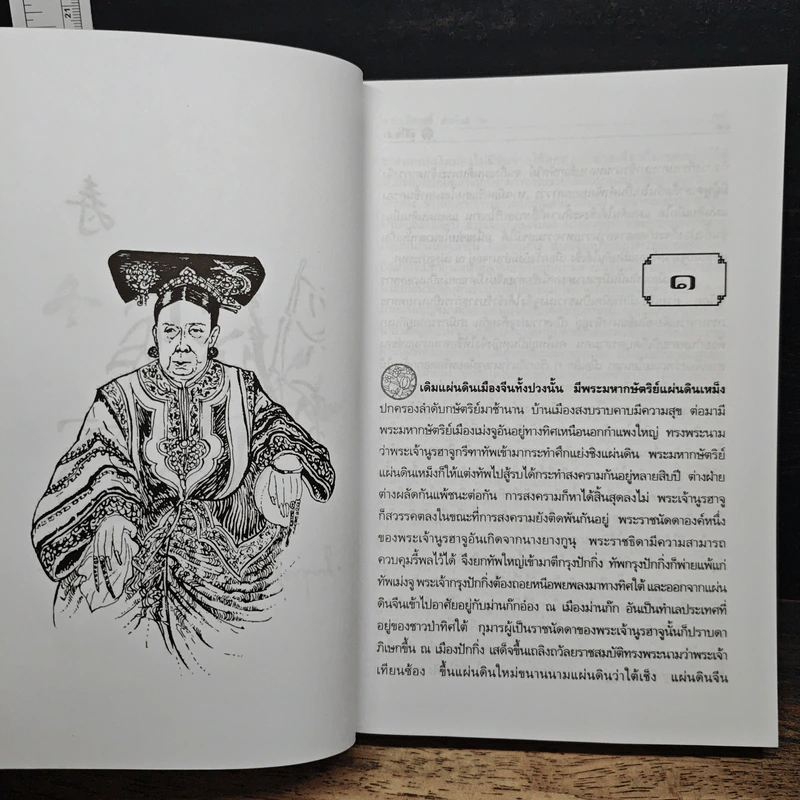 21
๑
เดิมแผ่นดินเมืองจีนทั้งปวงนั้น มีพระมหากษัตริย์แผ่นดินเหม็ง
ปกครองลำดับกษัตริย์มาช้านาน บ้านเมืองสงบราบคาบมีความสุข ต่อมามี
พระมหากษัตริย์เมืองเม่งจูอันอยู่ทางทิศเหนือนอกกำแพงใหญ่ ทรงพระนาม
ว่าพระเจ้านูรฮาจูกรีฑาทัพเข้ามากระทำศึกแย่งชิงแผ่นดิน พระมหากษัตริย์
แผ่นดินเหม็งก็ให้แต่งทัพไปสู้รบได้กระทำสงครามกันอยู่หลายสิบปี ต่างฝ่าย
ต่างผลัดกันแพ้ชนะต่อกัน การสงครามก็หาได้สิ้นสุดลงไม่ พระเจ้านูรฮาจู
ก็สวรรคตลงในขณะที่การสงครามยังติดพันกันอยู่ พระราชนัดดาองค์หนึ่ง
ของพระเจ้านูรฮาจูอันเกิดจากนางยางกูนุ พระราชธิดามีความสามารถ
ควบคุมรี้พลไว้ได้ จึงยกทัพใหญ่เข้ามาตีกรุงปักกิ่ง ทัพกรุงปักกิ่งก็พ่ายแพ้แก่
ทัพเม่งจู พระเจ้ากรุงปักกิ่งต้องถอยหนีอพยพลงมาทางทิศใต้ และออกจากแผ่น
ดินจีนเข้าไปอาศัยอยู่กับม่านก๊กอ๋อง ณ เมืองม่านก๊ก อันเป็นทำเลประเทศที่
อยู่ของชาวป่าทิศใต้ กุมารผู้เป็นราชนัดดาของพระเจ้านูรฮาจูนั้นก็ปราบดา
ภิเษกขึ้น ณ เมืองปักกิ่ง เสด็จขึ้นเถลิงถวัลยราชสมบัติทรงพระนามว่าพระเจ้า
เทียนช้อง ขึ้นแผ่นดินใหม่ขนานนามแผ่นดินว่าใต้เช็ง แผ่นดินจีน